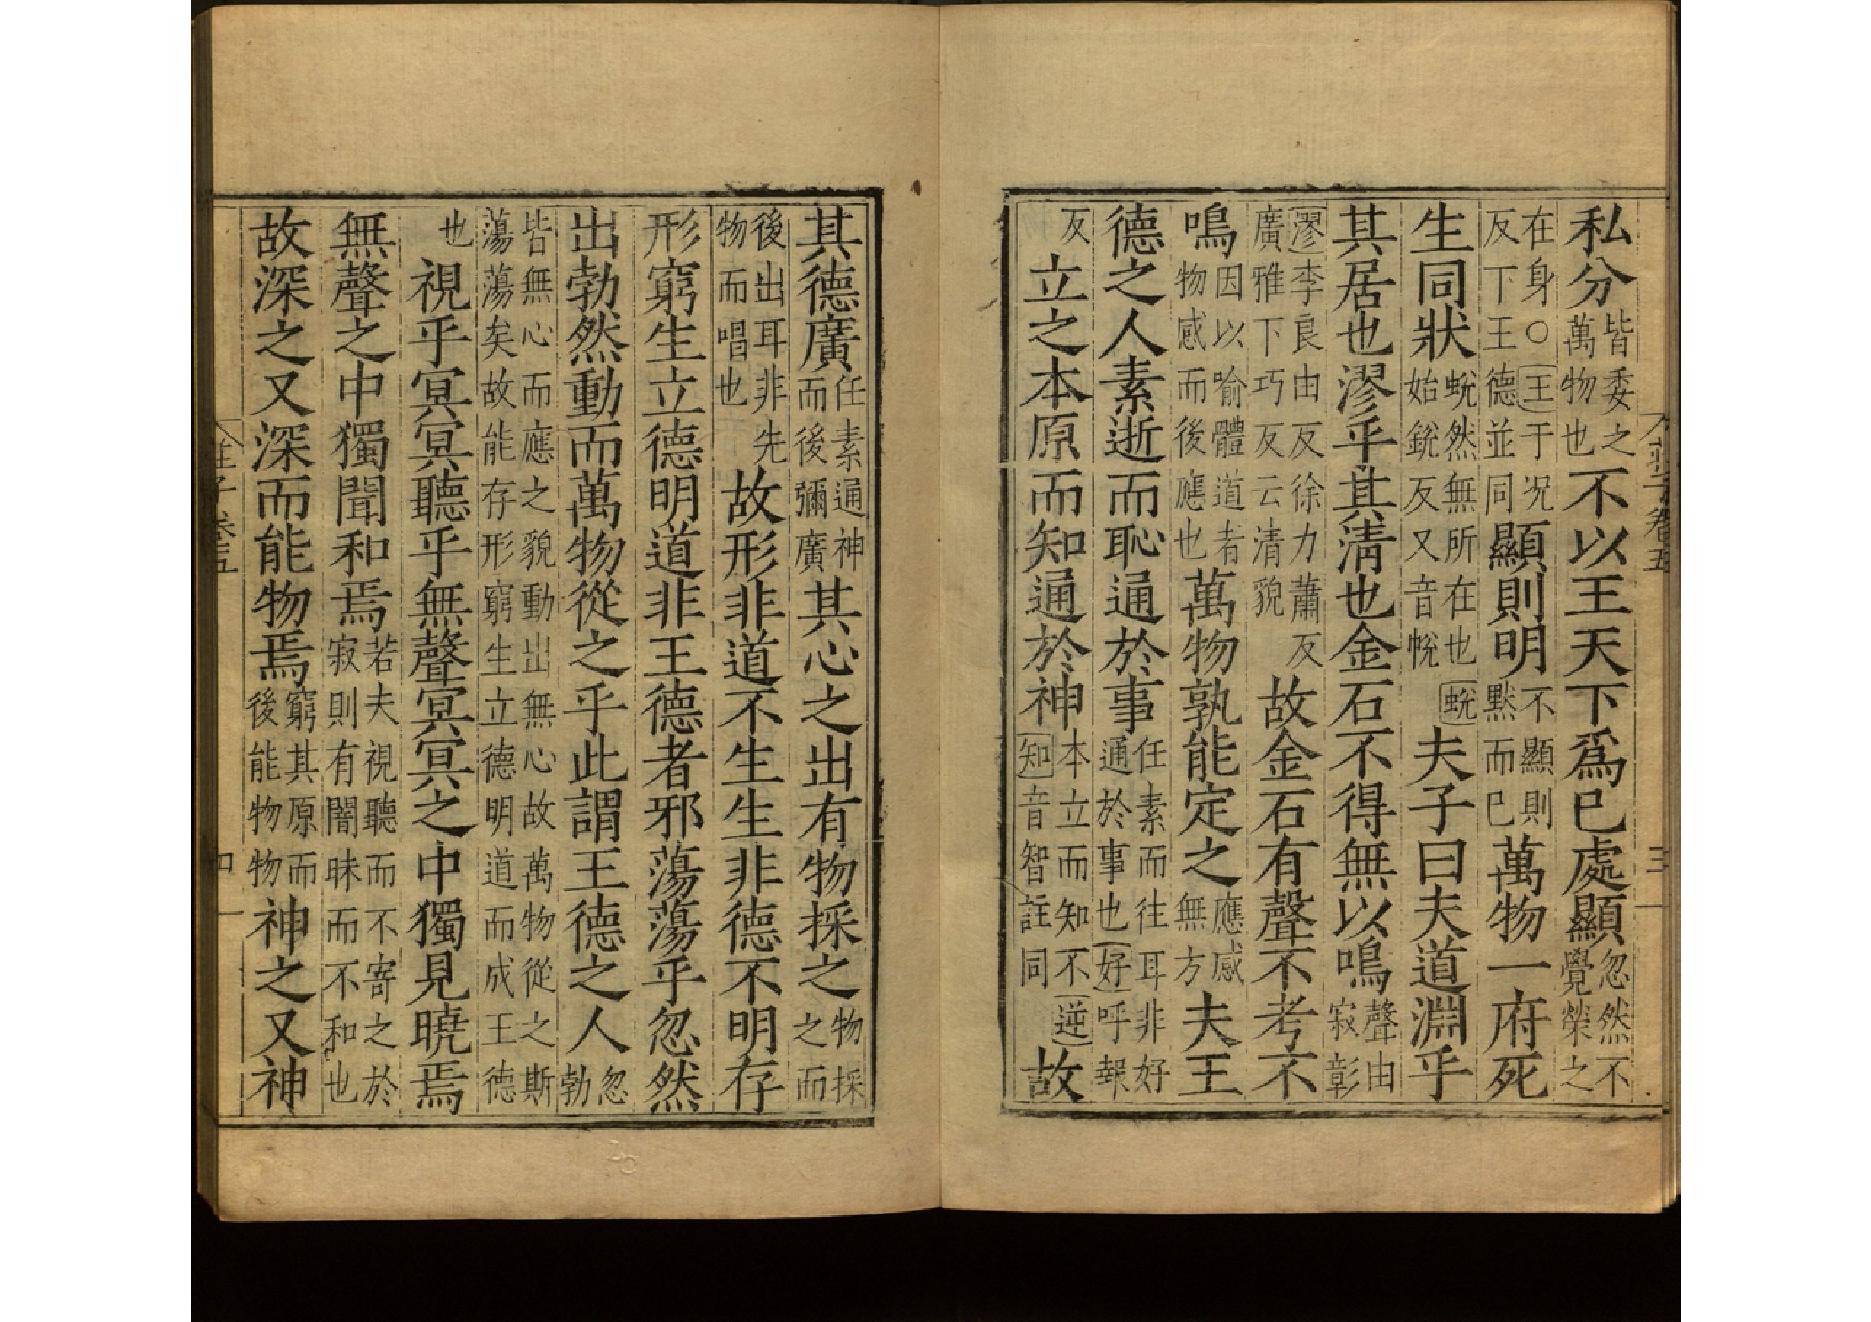 私分皆委之萬物也不以王天下爲已處顯忽然不覺榮之
在身○王于況反下王德並同顯則明不顯則默而已萬物一府死
生同狀蛻然無所在也蛻始銳反又音悅夫子曰夫道淵乎
其居也漻乎其清也金石不得無以鳴聲由寂彰
漻李良由反徐力蕭反廣雅下巧反云清貌故金石有聲不考不
鳴因以喻體道者物感而後應也萬物孰能定之應感無方夫王
德之人素逝而恥通於事任素而往耳非好通於事也好呼報
反立之本原而知通於神本立而知不逆知音智註同故
其德廣任素通神而後彌廣其心之出有物採之物採之而
後出耳非先物而唱也故形非道不生生非德不明存
形窮生立德明道非王德者邪蕩蕩乎忽然
出勃然動而萬物從之乎此謂王德之人忽勃
皆無心而應之貌動出無心故萬物從之斯蕩蕩矣故能存形窮生立德明道而成王德
也視乎冥冥聽乎無聲冥冥之中獨見曉焉
無聲之中獨聞和焉若夫視聽而不寄之於寂則有闇昧而不和也
故深之又深而能物焉窮其原而後能物物神之又神